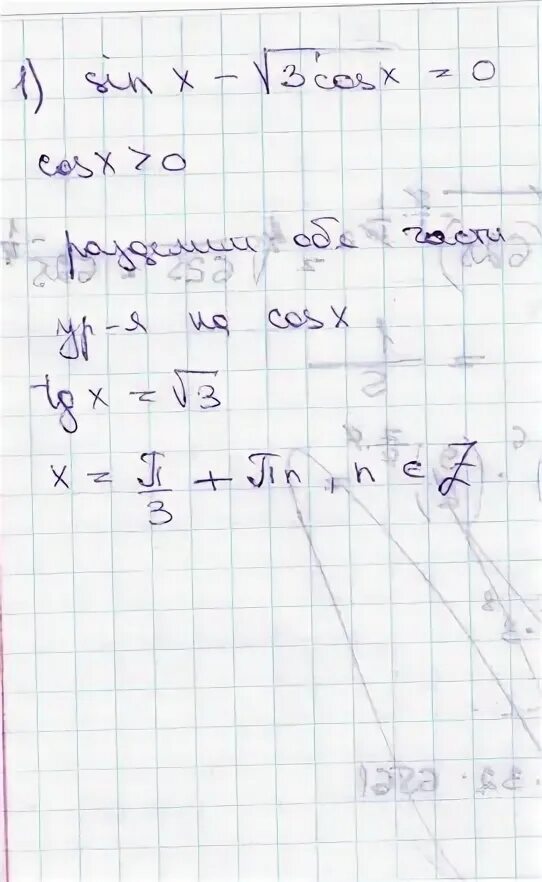 1) sin x - √3 cos x = 0
cos x > 0
- разделим обе части
ур-я на cos x
tg x = √3
x = π/3 + πn, n ∈ Z